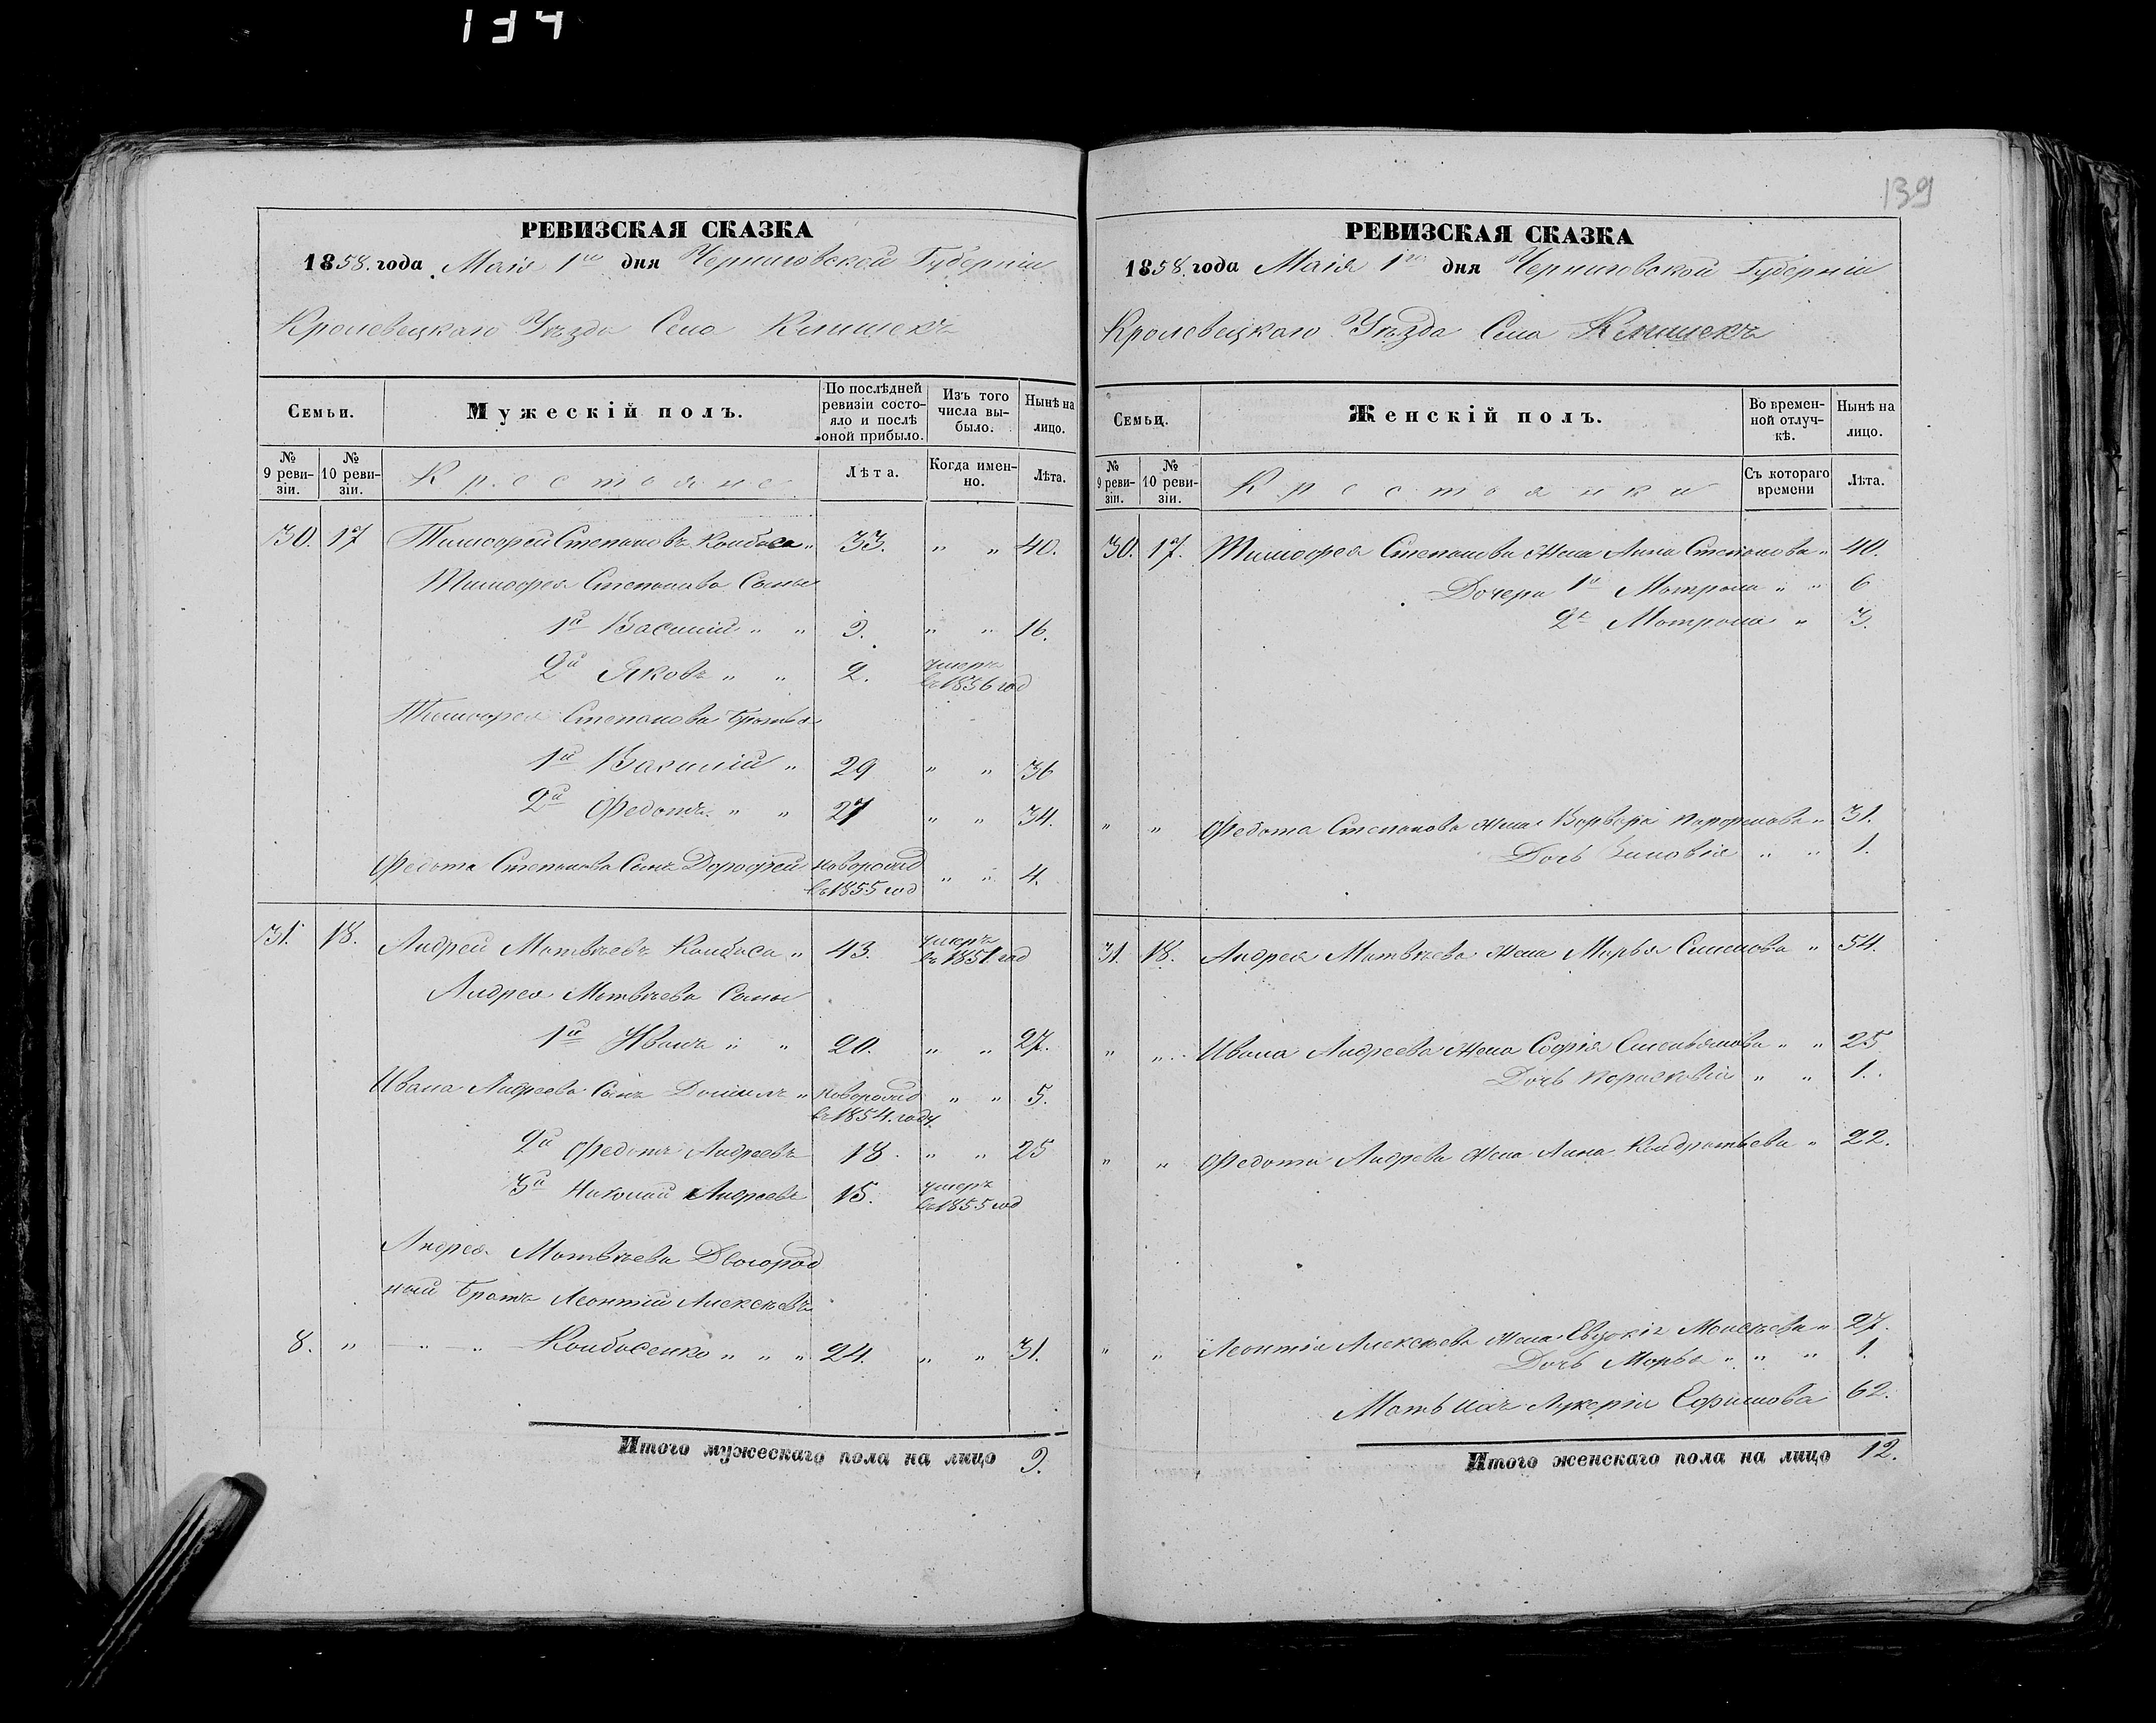 134
139
РЕВИЗСКАЯ СКАЗКА
1858. года Маія 1го дня Черниговской Губерніи
Кролевецкаго Уѣзда Села Клишекъ
Семьи.
Мужескій полъ.
По послѣдней ревизіи состояло и послѣ оной прибыло.
Изъ того числа выбыло.
Нынѣ на лицо.
№ 9 ревизіи.
№ 10 ревизіи.
Крестьяне
Лѣта.
Когда именно.
Лѣта.
30. 17 Тимофей Степановъ Колбаса " 33. " " 40.
Тимофея Степанова Сыны
1й Василий " " 9. " " 16.
2й Яковъ " " 2. умеръ въ 1856 год
Тимофея Степанова братья
1й Василий " 29 " " 36
2й Федотъ " " 27 " " 34.
Федота Степанова Сынъ Дорофей новорожд въ 1855 год " " 4.
31. 18. Андрей Матвѣевъ Колбаса " 43. умеръ въ 1851 год
Андрея Матвѣева Сыны
1й Иванъ " " 20. " " 27.
Ивана Андреева Сынъ " новорожд въ 1854. году. " " 5.
2й Федотъ Андреевъ 18. " " 25
3й Николай Андреевъ 15. умеръ въ 1855 год
Андрея Матвѣева Двоюрод
ный братъ Леонтій Алексѣевъ
8. " — " — " Колбасенко " " " 24. " " 31.
Итого мужескаго пола на лицо 9.
РЕВИЗСКАЯ СКАЗКА
1858. года Маія 1го дня Черниговской Губерніи
Кролевецкаго Уѣзда Села Клишекъ
Семьи.
Женскій полъ.
Во временной отлучкѣ.
Нынѣ на лицо.
№ 9 ревизіи.
№ 10 ревизіи.
Крестьянки
Съ котораго времени
Лѣта.
30. 17. Тимофея Степанова жена Анна Степанова " 40.
Дочери 1я Матрона " " 6
2я Матрона " 3.
" " Федота Степанова жена Варвара " 31.
Дочь Зиновія " " 1.
31. 18. Андрея Матвѣева жена Марья Симонова " 54.
" " Ивана Андреева жена Софія " " 25
Дочь Парасковія " " 1.
" " Федота Андрева жена Анна Кондратьева " 22.
" " Леонтія Алексѣева жена Евдокія " 27.
Дочь Марья " " " 1.
Мать ихъ Лукерія Ефимова 62.
Итого женскаго пола на лицо 12.